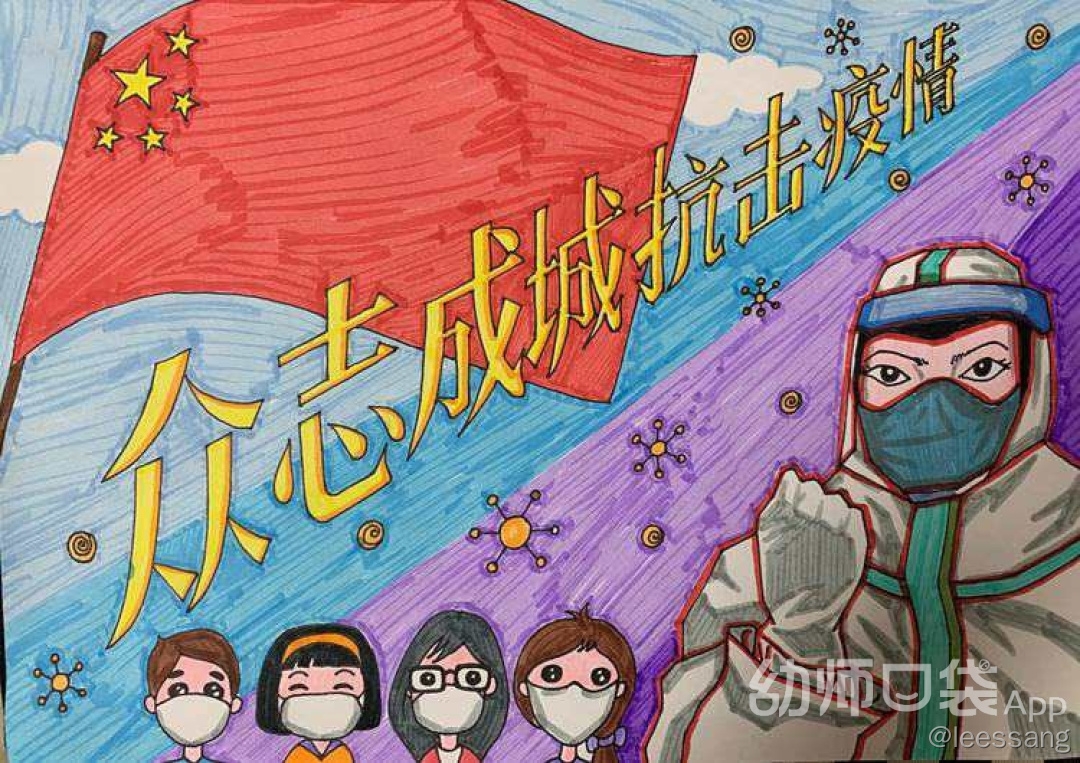 众志成城抗击疫情
幼师口袋App
@leessang